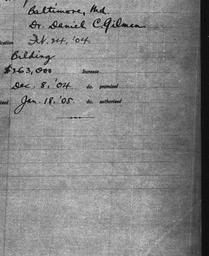 Baltimore, Md.
Dr. Daniel C. Gilman
Feb. 24, '04
Bilding
$263,000 Increase
Dec. 8, '04 do. promised
Jan. 18, '05 do. authorized